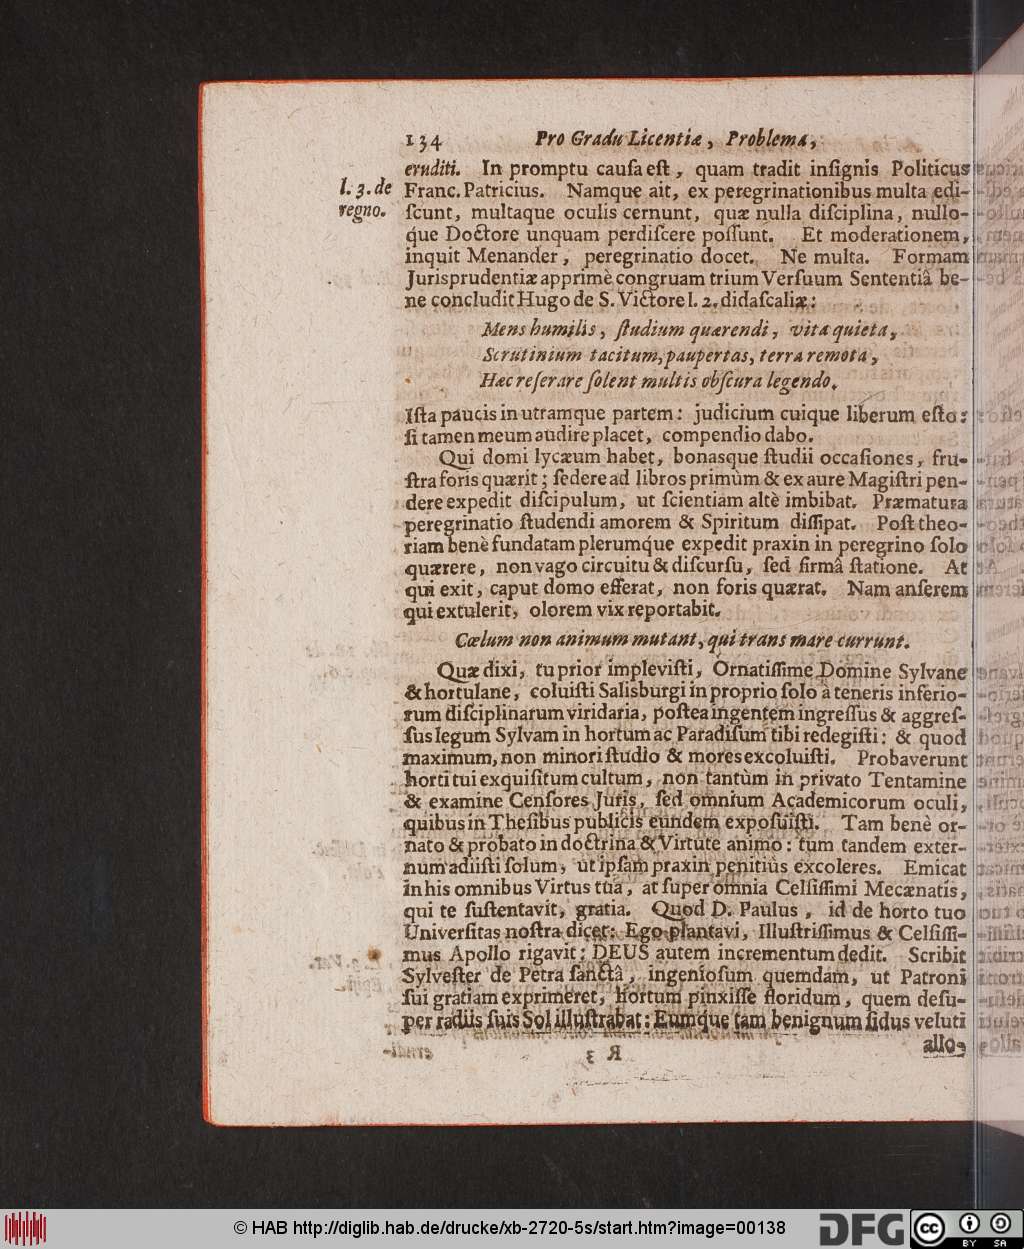 134 Pro Gradu Licentiæ, Problema,
eruditi. In promptu cauſa eſt, quam tradit inſignis Politicus
l. 3. de
regno.
Franc. Patricius. Namque ait, ex peregrinationibus multa edi-
ſcunt, multaque oculis cernunt, quæ nulla diſciplina, nullo-
q́ue Doctore unquam perdiſcere poſſunt. Et moderationem,
inquit Menander, peregrinatio docet. Ne multa. Formam
Jurisprudentiæ apprimè congruam trium Verſuum Sententiâ be-
ne concludit Hugo de S. Victore l. 2. didaſcaliæ:
Mens humilis, ſtudium quærendi, vita quieta,
Scrutinium tacitum, paupertas, terra remota,
Hæc reſerare ſolent multis obſcura legendo.
Iſta paucis in utramque partem: judicium cuique liberum eſto:
ſi tamen meum audire placet, compendio dabo.
Qui domi lycæum habet, bonasque ſtudii occaſiones, fru-
ſtra foris quærit; ſedere ad libros primùm & ex aure Magiſtri pen-
dere expedit diſcipulum, ut ſcientiam altè imbibat. Præmatura
peregrinatio ſtudendi amorem & Spiritum diſſipat. Poſt theo-
riam benè fundatam plerumq́ue expedit praxin in peregrino ſolo
quærere, non vago circuitu & diſcurſu, ſed firmâ ſtatione. At
qui exit, caput domo efferat, non foris quærat. Nam anſerem
qui extulerit, olorem vix reportabit.
Cœlum non animum mutant, qui trans mare currunt.
Quæ dixi, tu prior impleviſti, Ornatiſſime Domine Sylvane
& hortulane, coluiſti Salisburgi in proprio ſolo à teneris inferio-
rum diſciplinarum viridaria, poſtea ingentem ingreſſus & aggreſ-
ſus legum Sylvam in hortum ac Paradiſum tibi redegiſti: & quod
maximum, non minori ſtudio & mores excoluiſti. Probaverunt
horti tui exquiſitum cultum, non tantùm in privato Tentamine
& examine Cenſores Juris, ſed omnium Academicorum oculi,
quibus in Theſibus publicis eundem expoſuiſti. Tam benè or-
nato & probato in doctrina & Virtute animo: tum tandem exter-
num adiiſti ſolum, ut ipſam praxin penitiùs excoleres. Emicat
in his omnibus Virtus tua, at ſuper omnia Celſiſſimi Mecænatis,
qui te ſuſtentavit, gratia. Quod D. Paulus, id de horto tuo
Univerſitas noſtra dicet: Ego plantavi, Illuſtriſſimus & Celſiſſi-
mus Apollo rigavit; DEUS autem incrementum dedit. Scribit
Sylveſter de Petra ſanctâ, ingenioſum quemdam, ut Patroni
ſui gratiam exprimeret, Hortum pinxiſſe floridum, quem deſu-
per radiis ſuis Sol illuſtrabat: Eumque tam benignum ſidus veluti
allo-
© HAB http://diglib.hab.de/drucke/xb-2720-5s/start.htm?image=00138
DFG
cc
BY SA